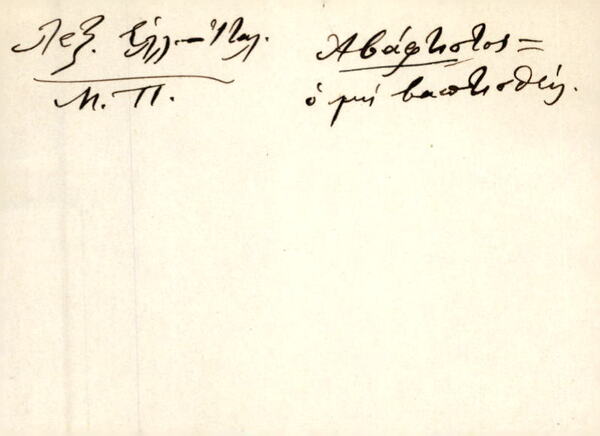 Λεξ. Ἑλλ.–Ἰταλ.
Μ. Π.
Ἀβάφτιστος =
ὁ μή βαπτισθείς.